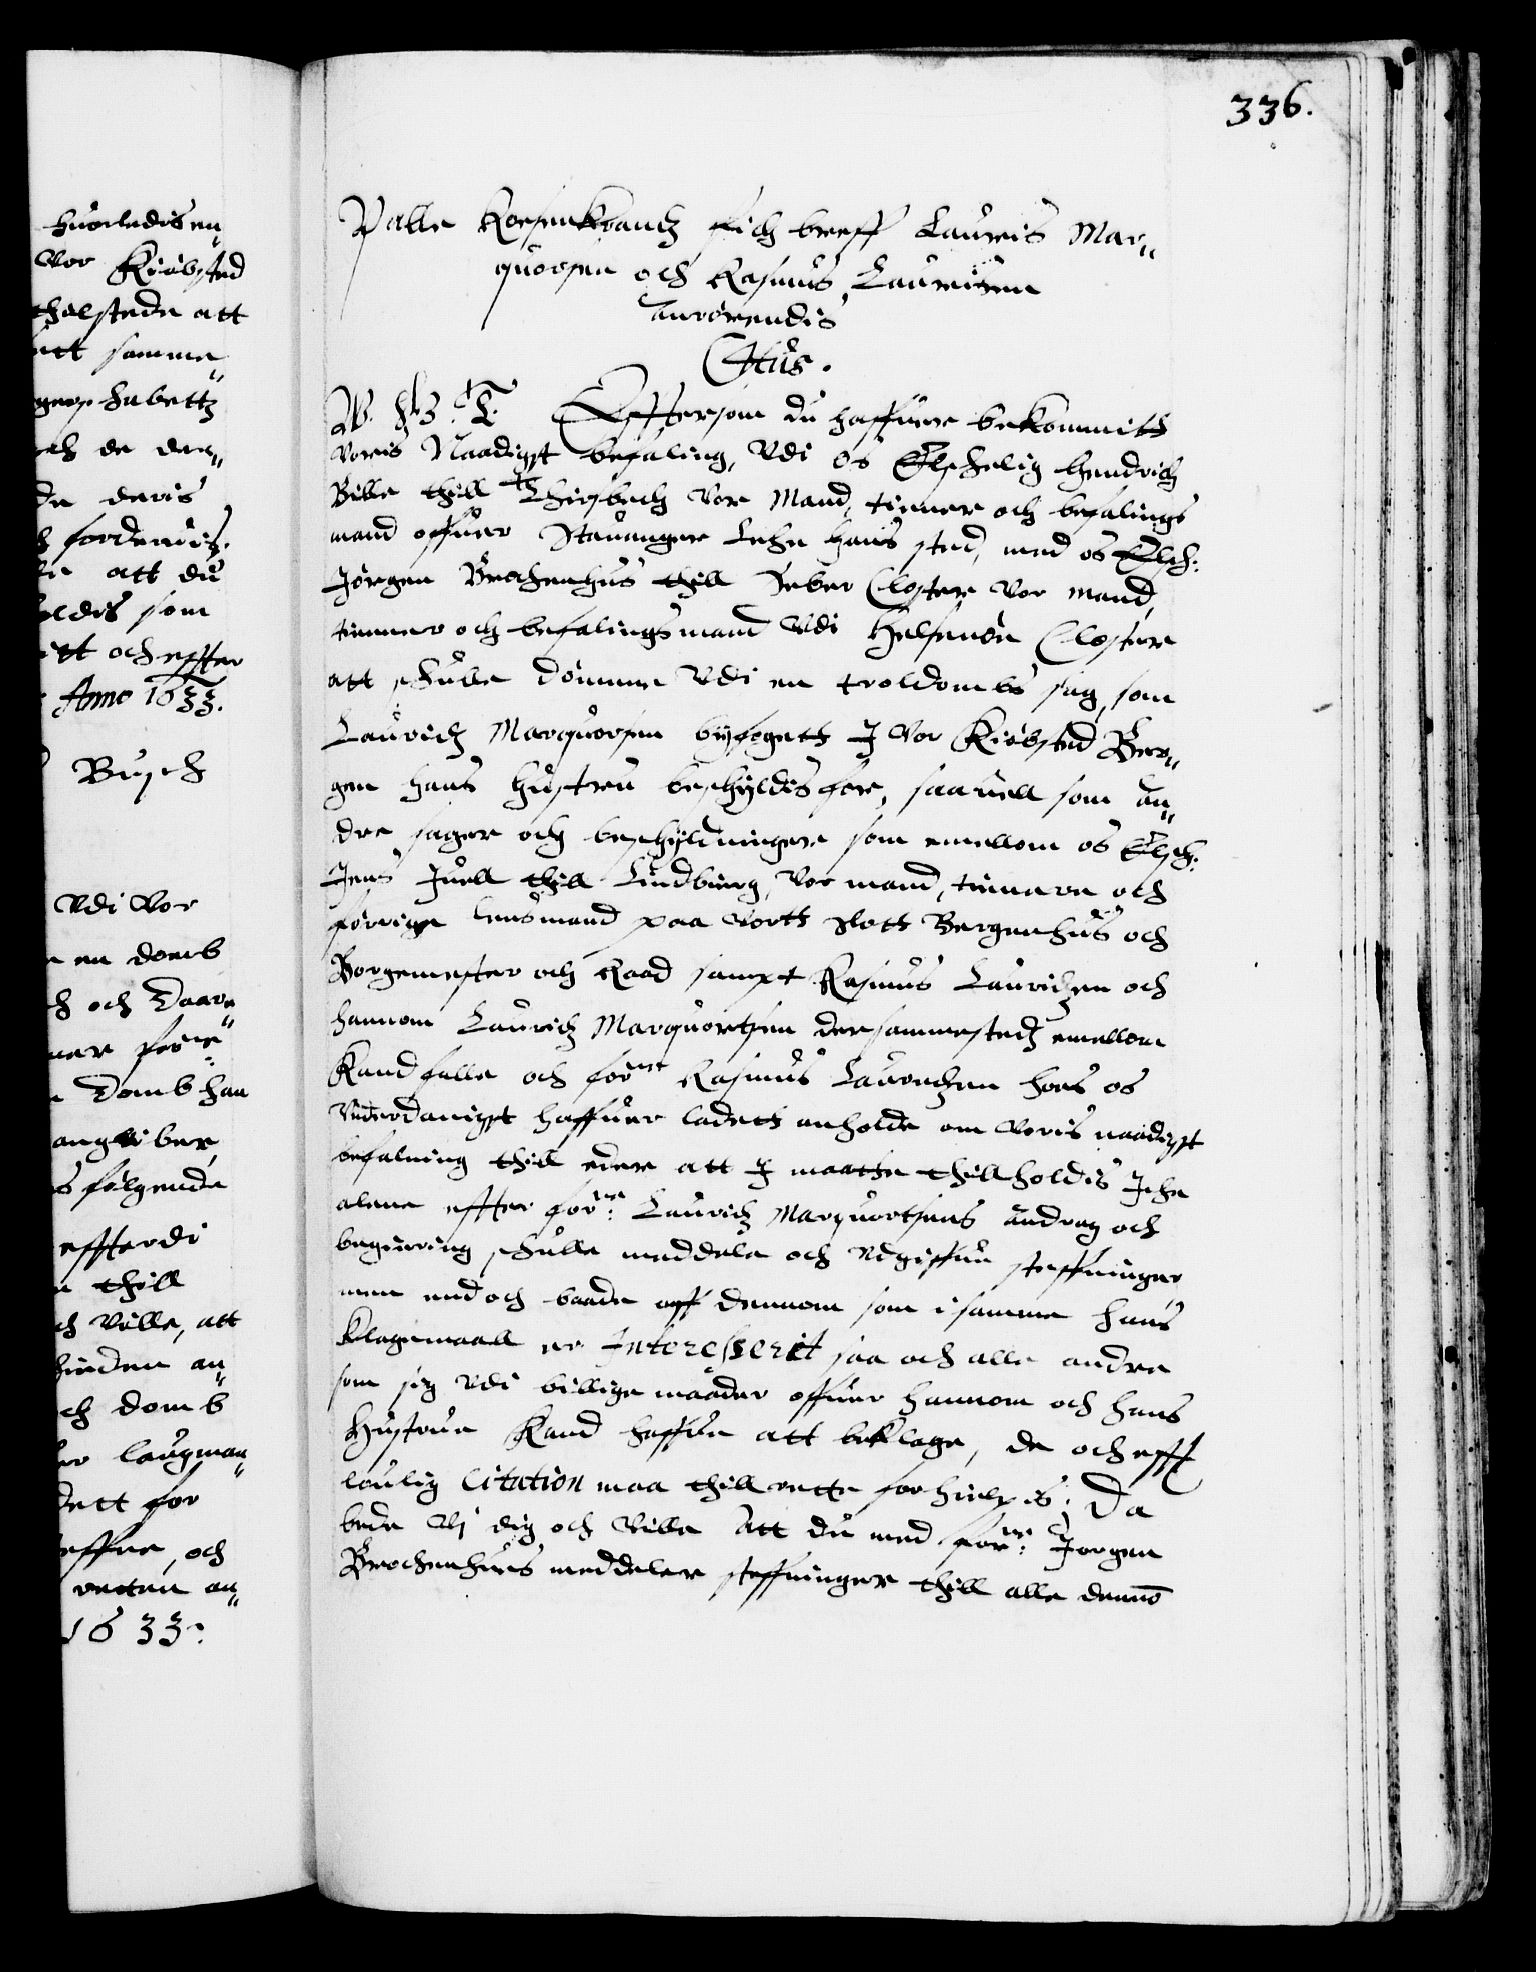 336.
huorledis en
vor Kiöbsted
att
samme
och de der
de deris
att du
som
itt och effter
Anno 1633.
Busch
Vdi vor
en domb
och Daare
domb han
følgende
effterdi
thill
och ville, att
domb
laugman
dett for
och
retten an
1633.
Palle Rosenkrantz fich breff Lauris Mar„
quorsen och Rasmus Lauritzen
anrörendis
C4tus.
W. S. G. T. Effttersom du haffuer bekommitt
voris Naadigst befaling, Vdi os Elschelig Hendrich
Bille thill Thirsbech Vor Mand, tiener och befalings
mand offuer Stauanger Lehn hans sted, med os Elsch:
Jörgen Brochenhus thill Seber Closter vor mand,
tienner och befalingsmand Vdi Halsenöe Closter
att schulle dömme Vdi en troldombs sag, som
Lauridz Marquorsen byfogett I vor Kiöbsted Ber„
gen hans hustru beschyldis for, saauell som an„
dre sager och beschyldninger som emellom os Elsch:
Jens Juell thill Lindbierg, vor mand, tiennere och
forrige lensmand paa vortt slott Bergenhus och
Borgemester och Raad sampt Rasmus Lauridzen och
hannom Lauridz Marquortsen dersammestedz emellom
Kand falle och forne Rasmus Lauredzen hoes os
Vnderdanigst haffuer ladett anholde om voris naadigst
befalning thill eder att I maatte thillholdis Iche
alene effter forne: Lauridz Marquortsens andrag och
begiering, schulle meddele och Vdgiffue steffninger
men endoch baade aff dennom som i samme hans
klagemaall er Interesserit saa och alle andre
som sig Vdi billige maader offuer hannom och hans
Hustrue Kand haffue att beklage, de och efft
loulig Citation maa thill rette forhielpis. Da
bede Vi dig och ville att du med forne: Jörgen
Brochenhuus meddeler steffninger thill alle dennō